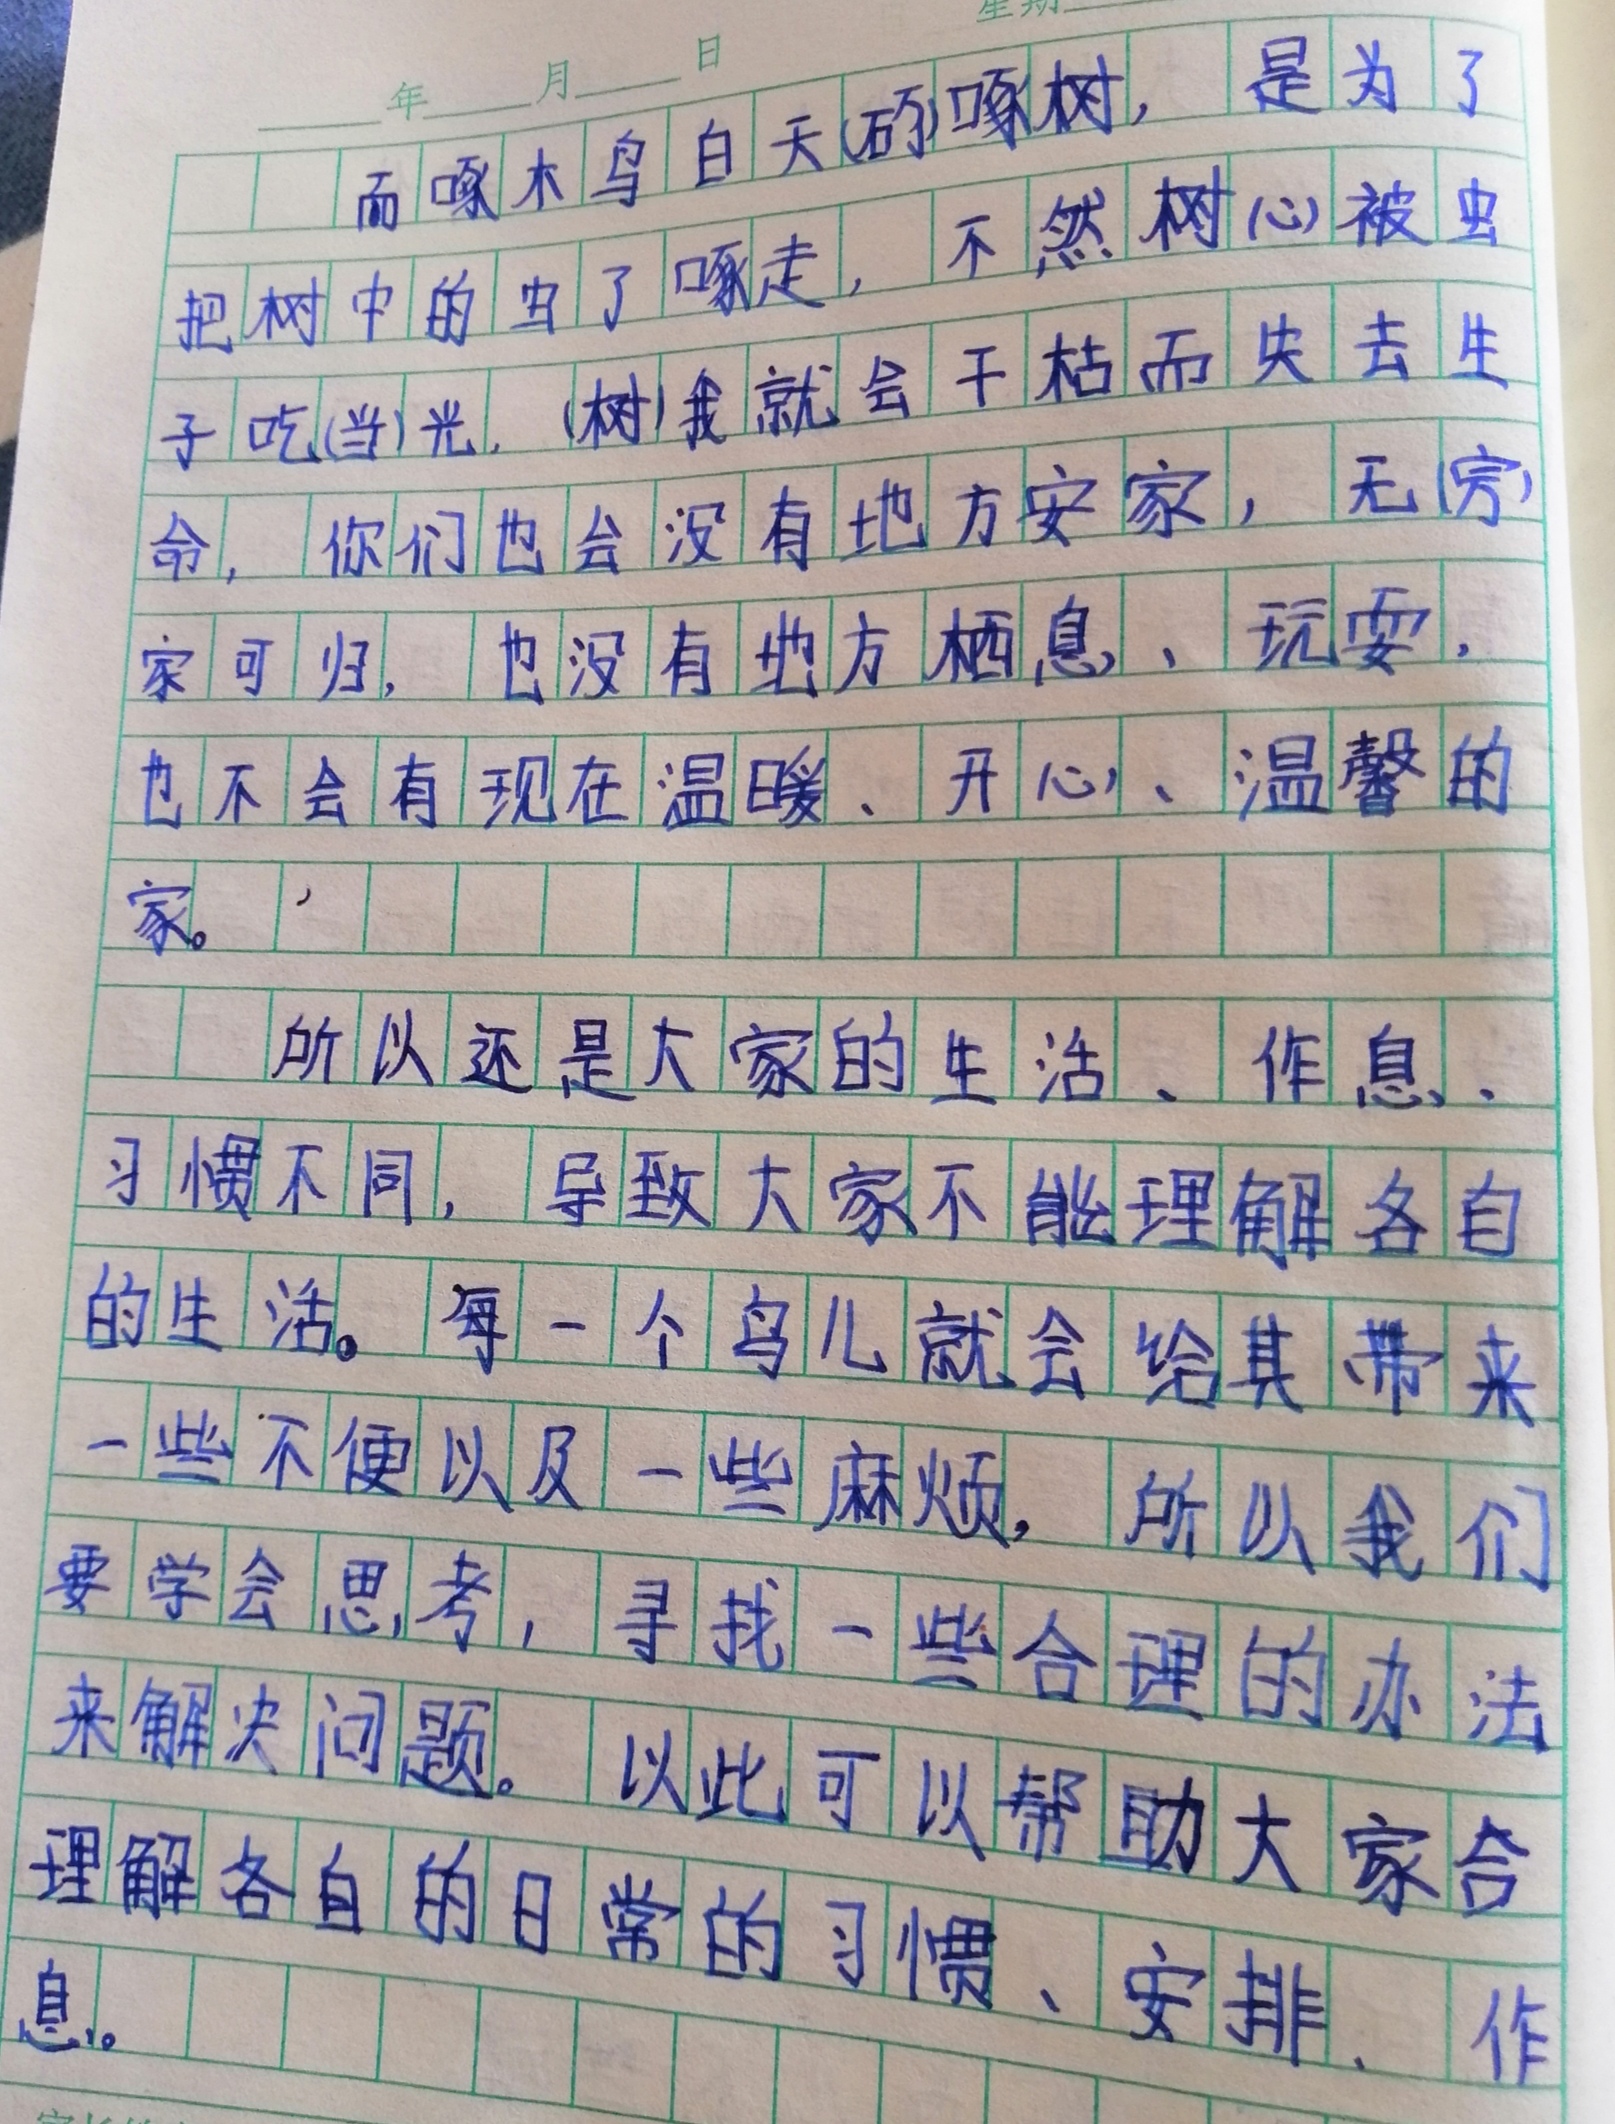 星期
年 月 日
而啄木鸟白天(硺)啄树，是为了
把树中的虫了啄走，不然树(心)被虫
子吃(当)光，(树)我就会干枯而失去生
命，你们也会没有地方安家，无(穷)
家可归，也没有地方栖息、玩耍，
也不会有现在温暖、开心、温馨的
家。，
所以还是大家的生活、作息、
习惯不同，导致大家不能理解各自
的生活。每一个鸟儿就会给其带来
一些不便以及一些麻烦，所以我们
要学会思考，寻找一些合理的办法
来解决问题。以此可以帮助大家合
理解各自的日常的习惯、安排、作
息。